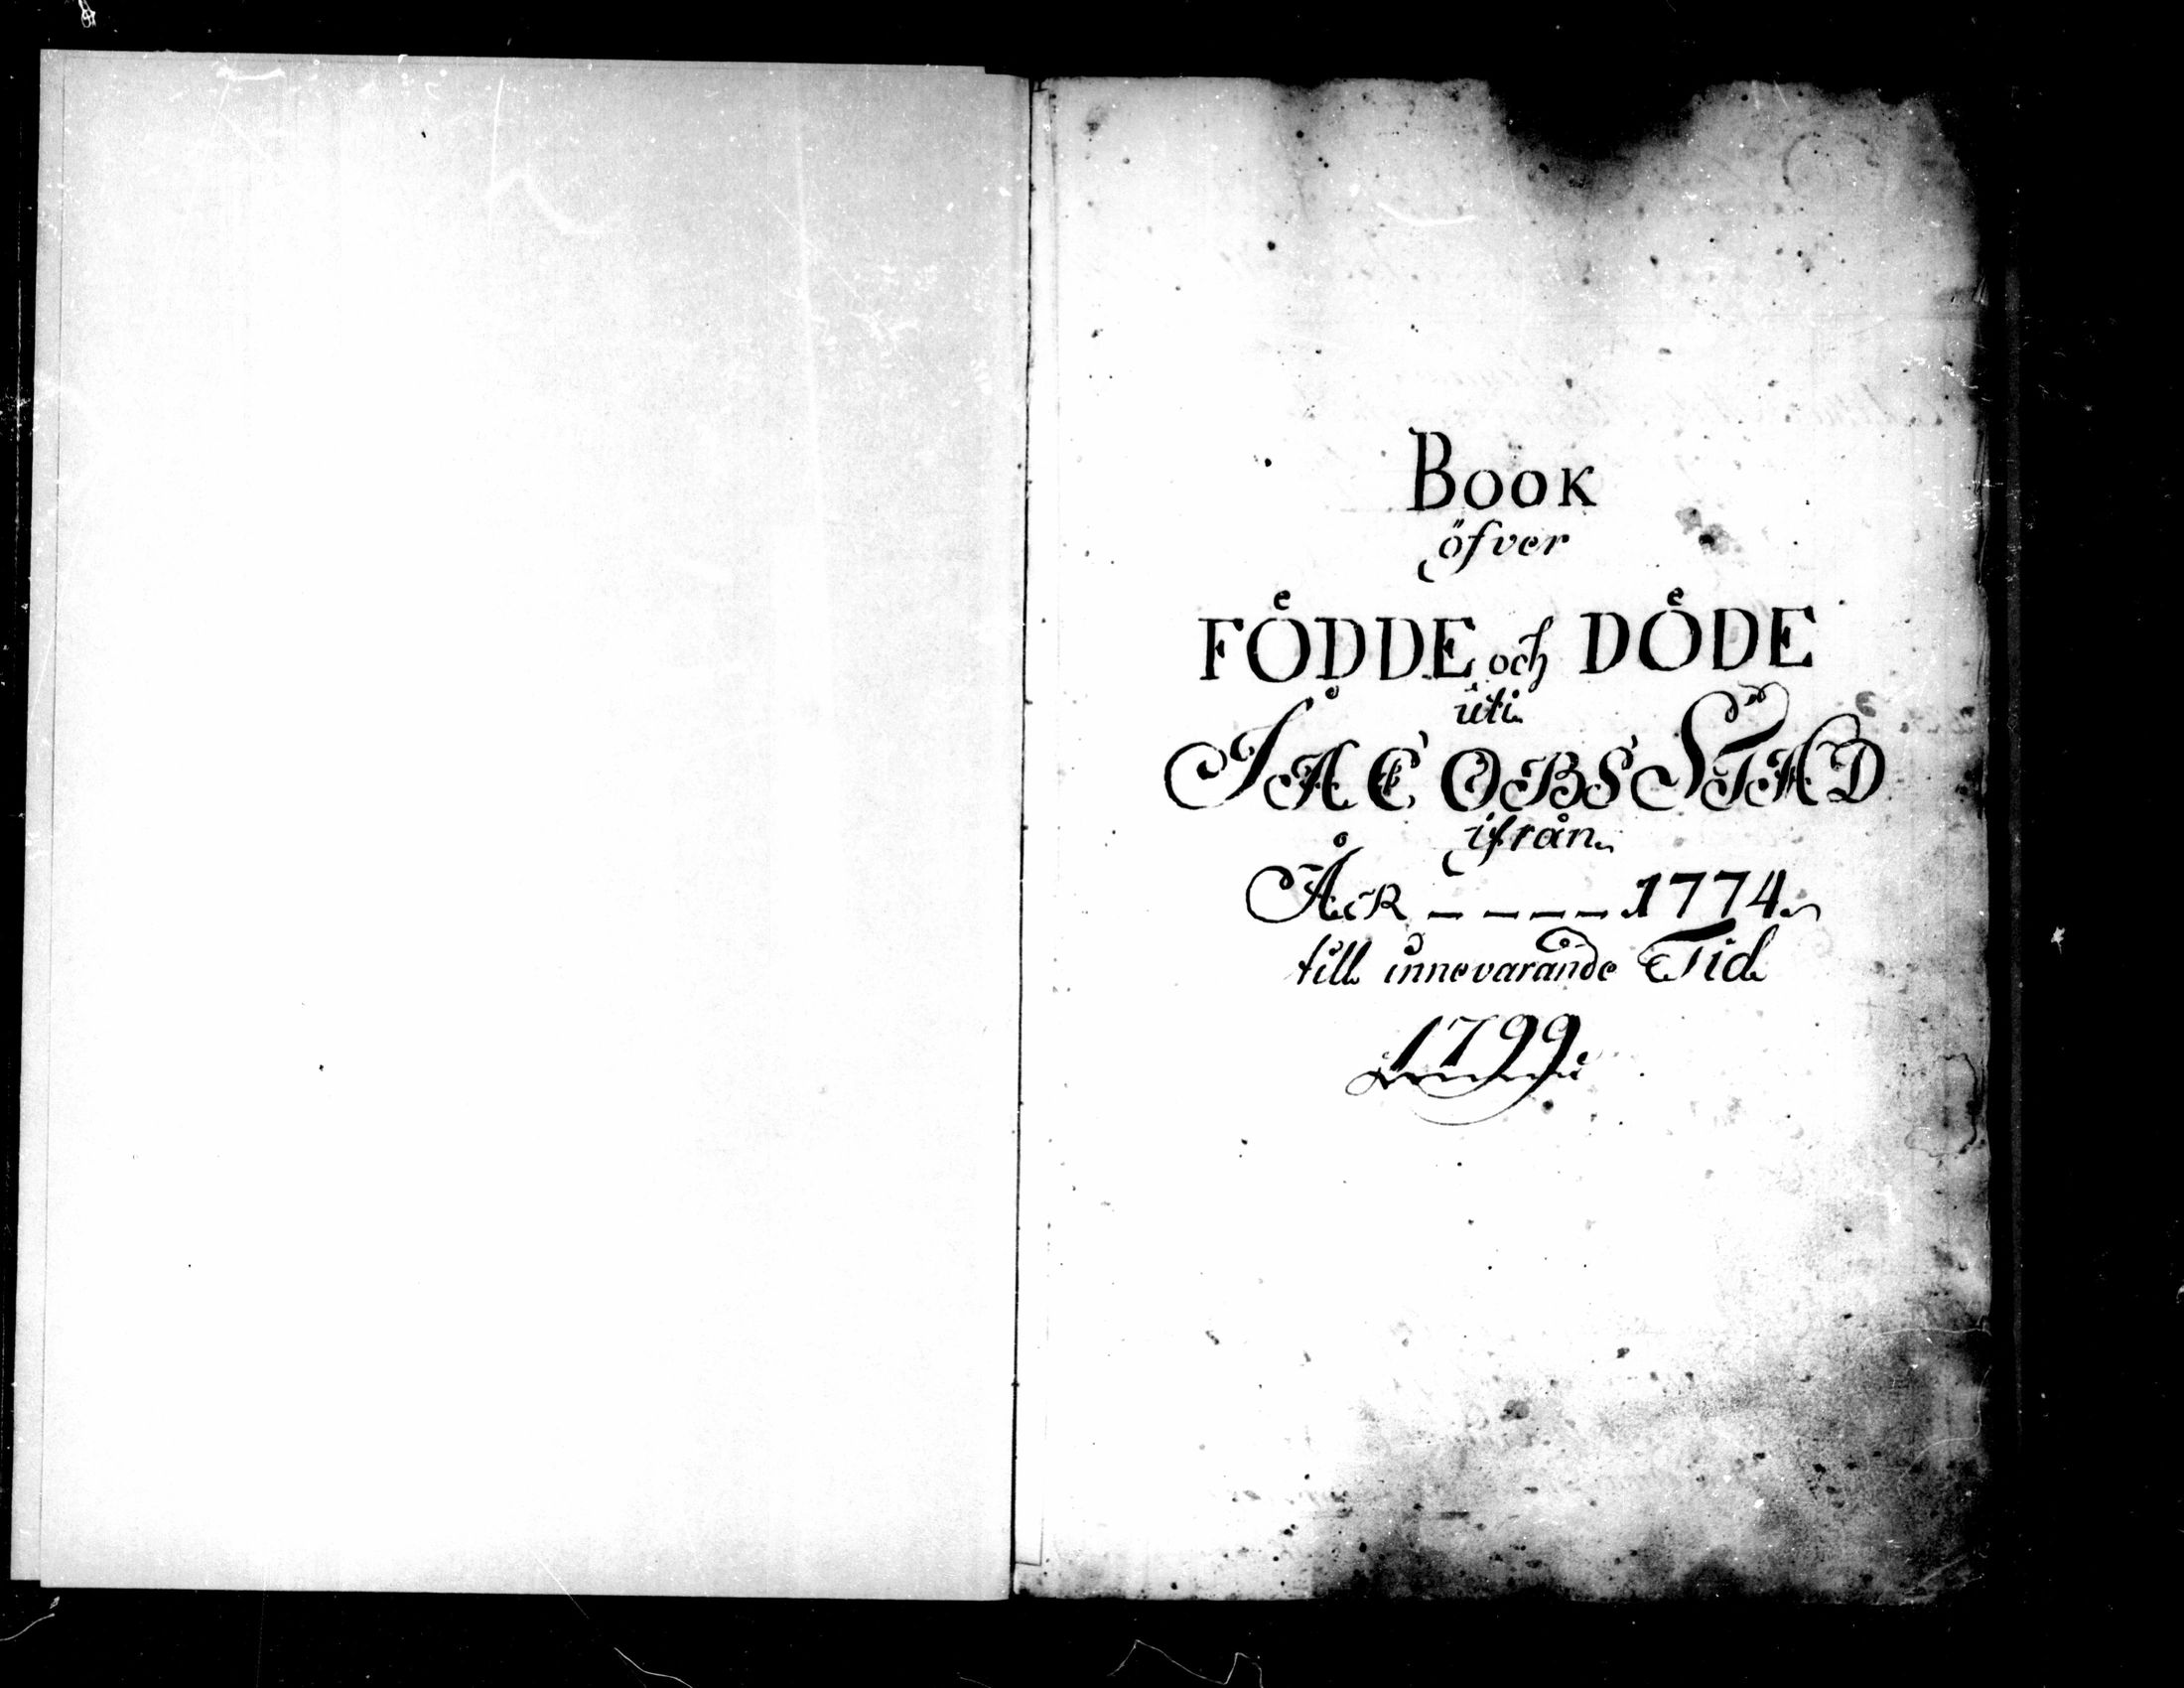 BOOK
öfver
FÖDDE och DÖDE
uti
JACOBSSTAD
ifrån
ÅR – – – – 1774.
till innevarande Tid
1799.